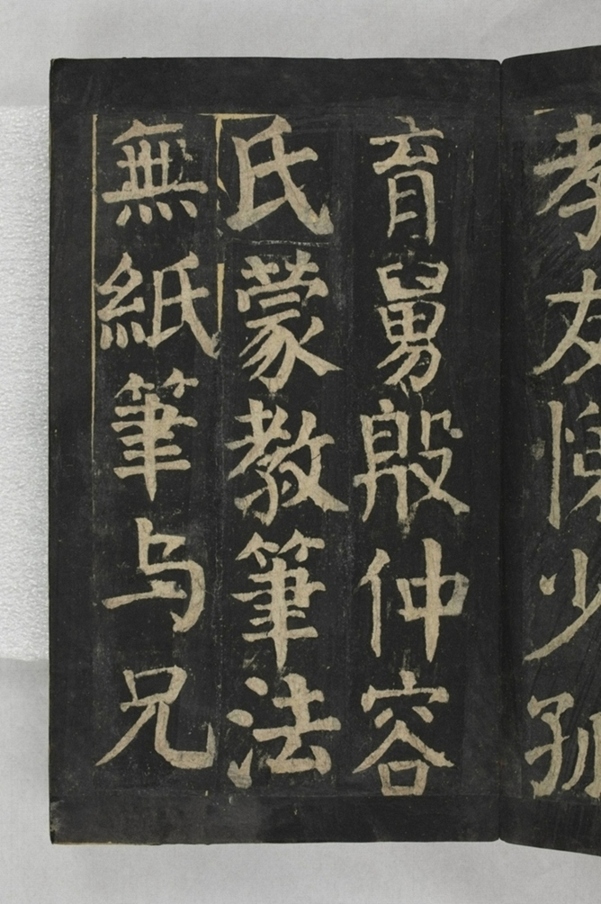 孝友陳少孤
育舅殷仲容
氏蒙教筆法
無紙筆与兄